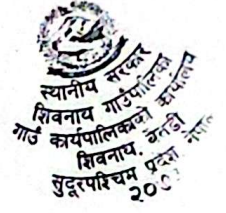 स्थानीय सरकार
शिवनाथ गाउँपालिका
गाउँ कार्यपालिकाको कार्यालय
शिवनाथ, बैतडी
सुदूरपश्चिम प्रदेश नेपाल